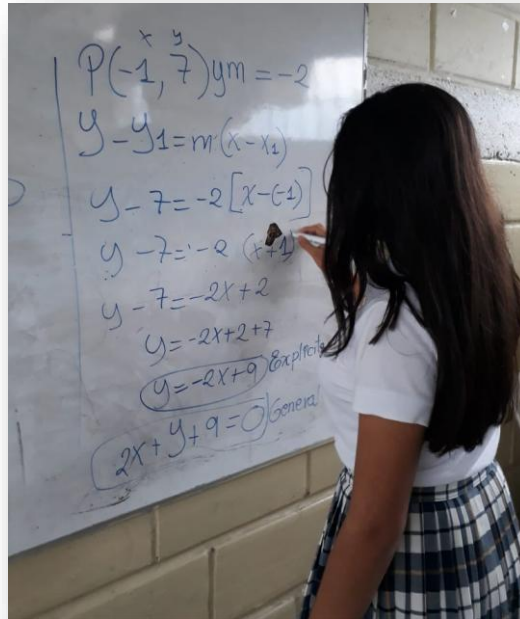 x y
P(-1, 7) y m = -2
y - y1 = m(x - x1)
y - 7 = -2 [x - (-1)]
y - 7 = -2 (x + 1)
y - 7 = -2x + 2
y = -2x + 2 + 7
y = -2x + 9 Explícita
2x + y + 9 = 0 General